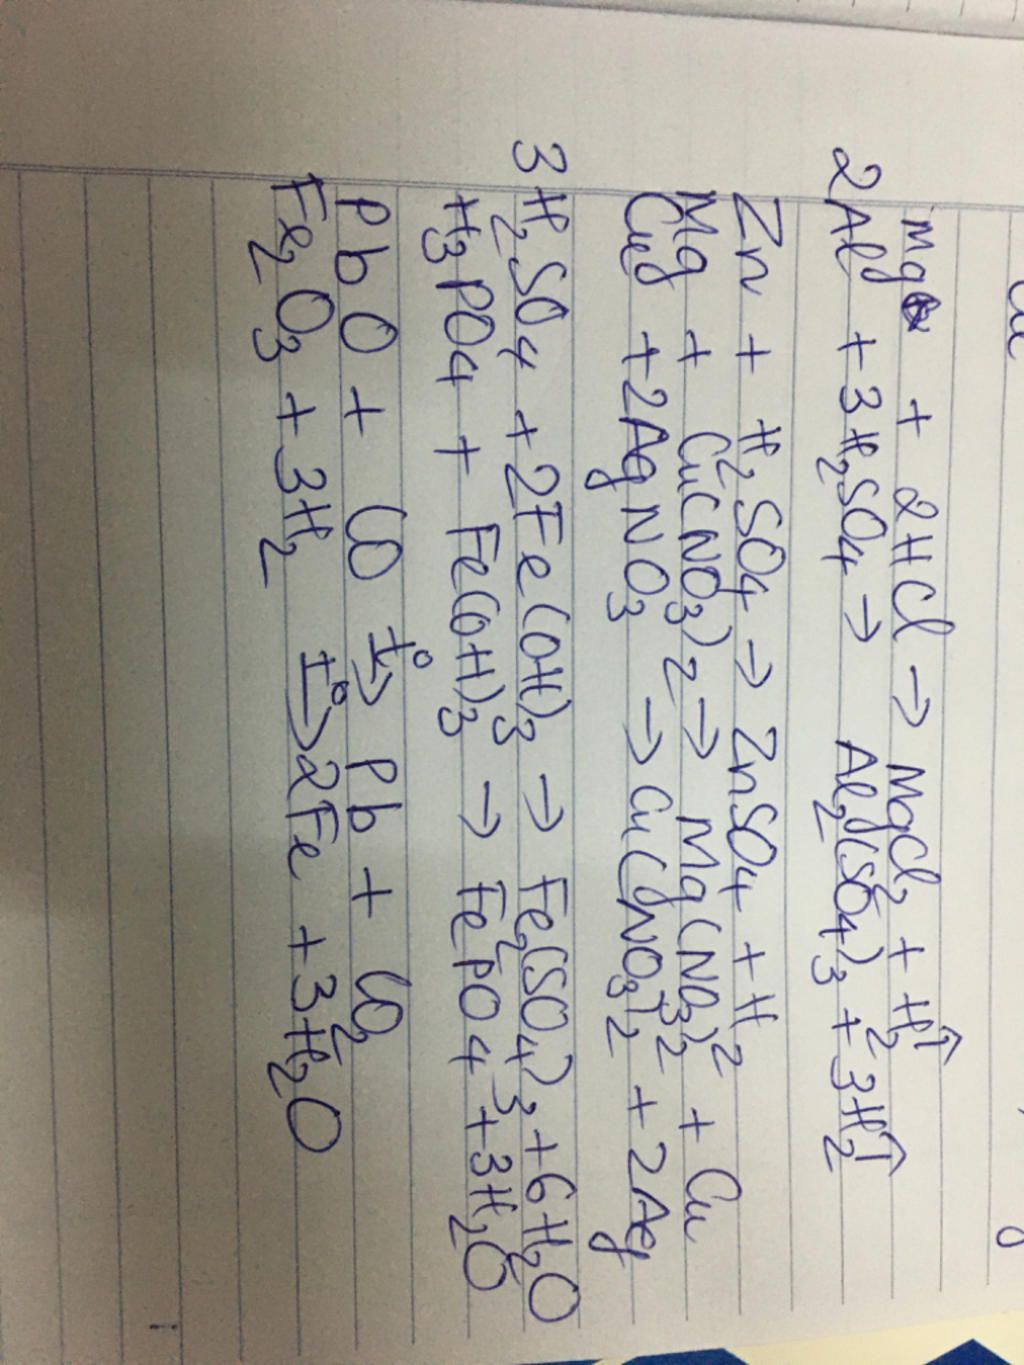 Mg + 2HCl → MgCl2 + H2↑
2Al + 3H2SO4 → Al2(SO4)3 + 3H2↑
Zn + H2SO4 → ZnSO4 + H2
Mg + Cu(NO3)2 → Mg(NO3)2 + Cu
Cu + 2AgNO3 → Cu(NO3)2 + 2Ag
3H2SO4 + 2Fe(OH)3 → Fe2(SO4)3 + 6H2O
H3PO4 + Fe(OH)3 → FePO4 + 3H2O
PbO + CO t°→ Pb + CO2
Fe2O3 + 3H2 t°→ 2Fe + 3H2O